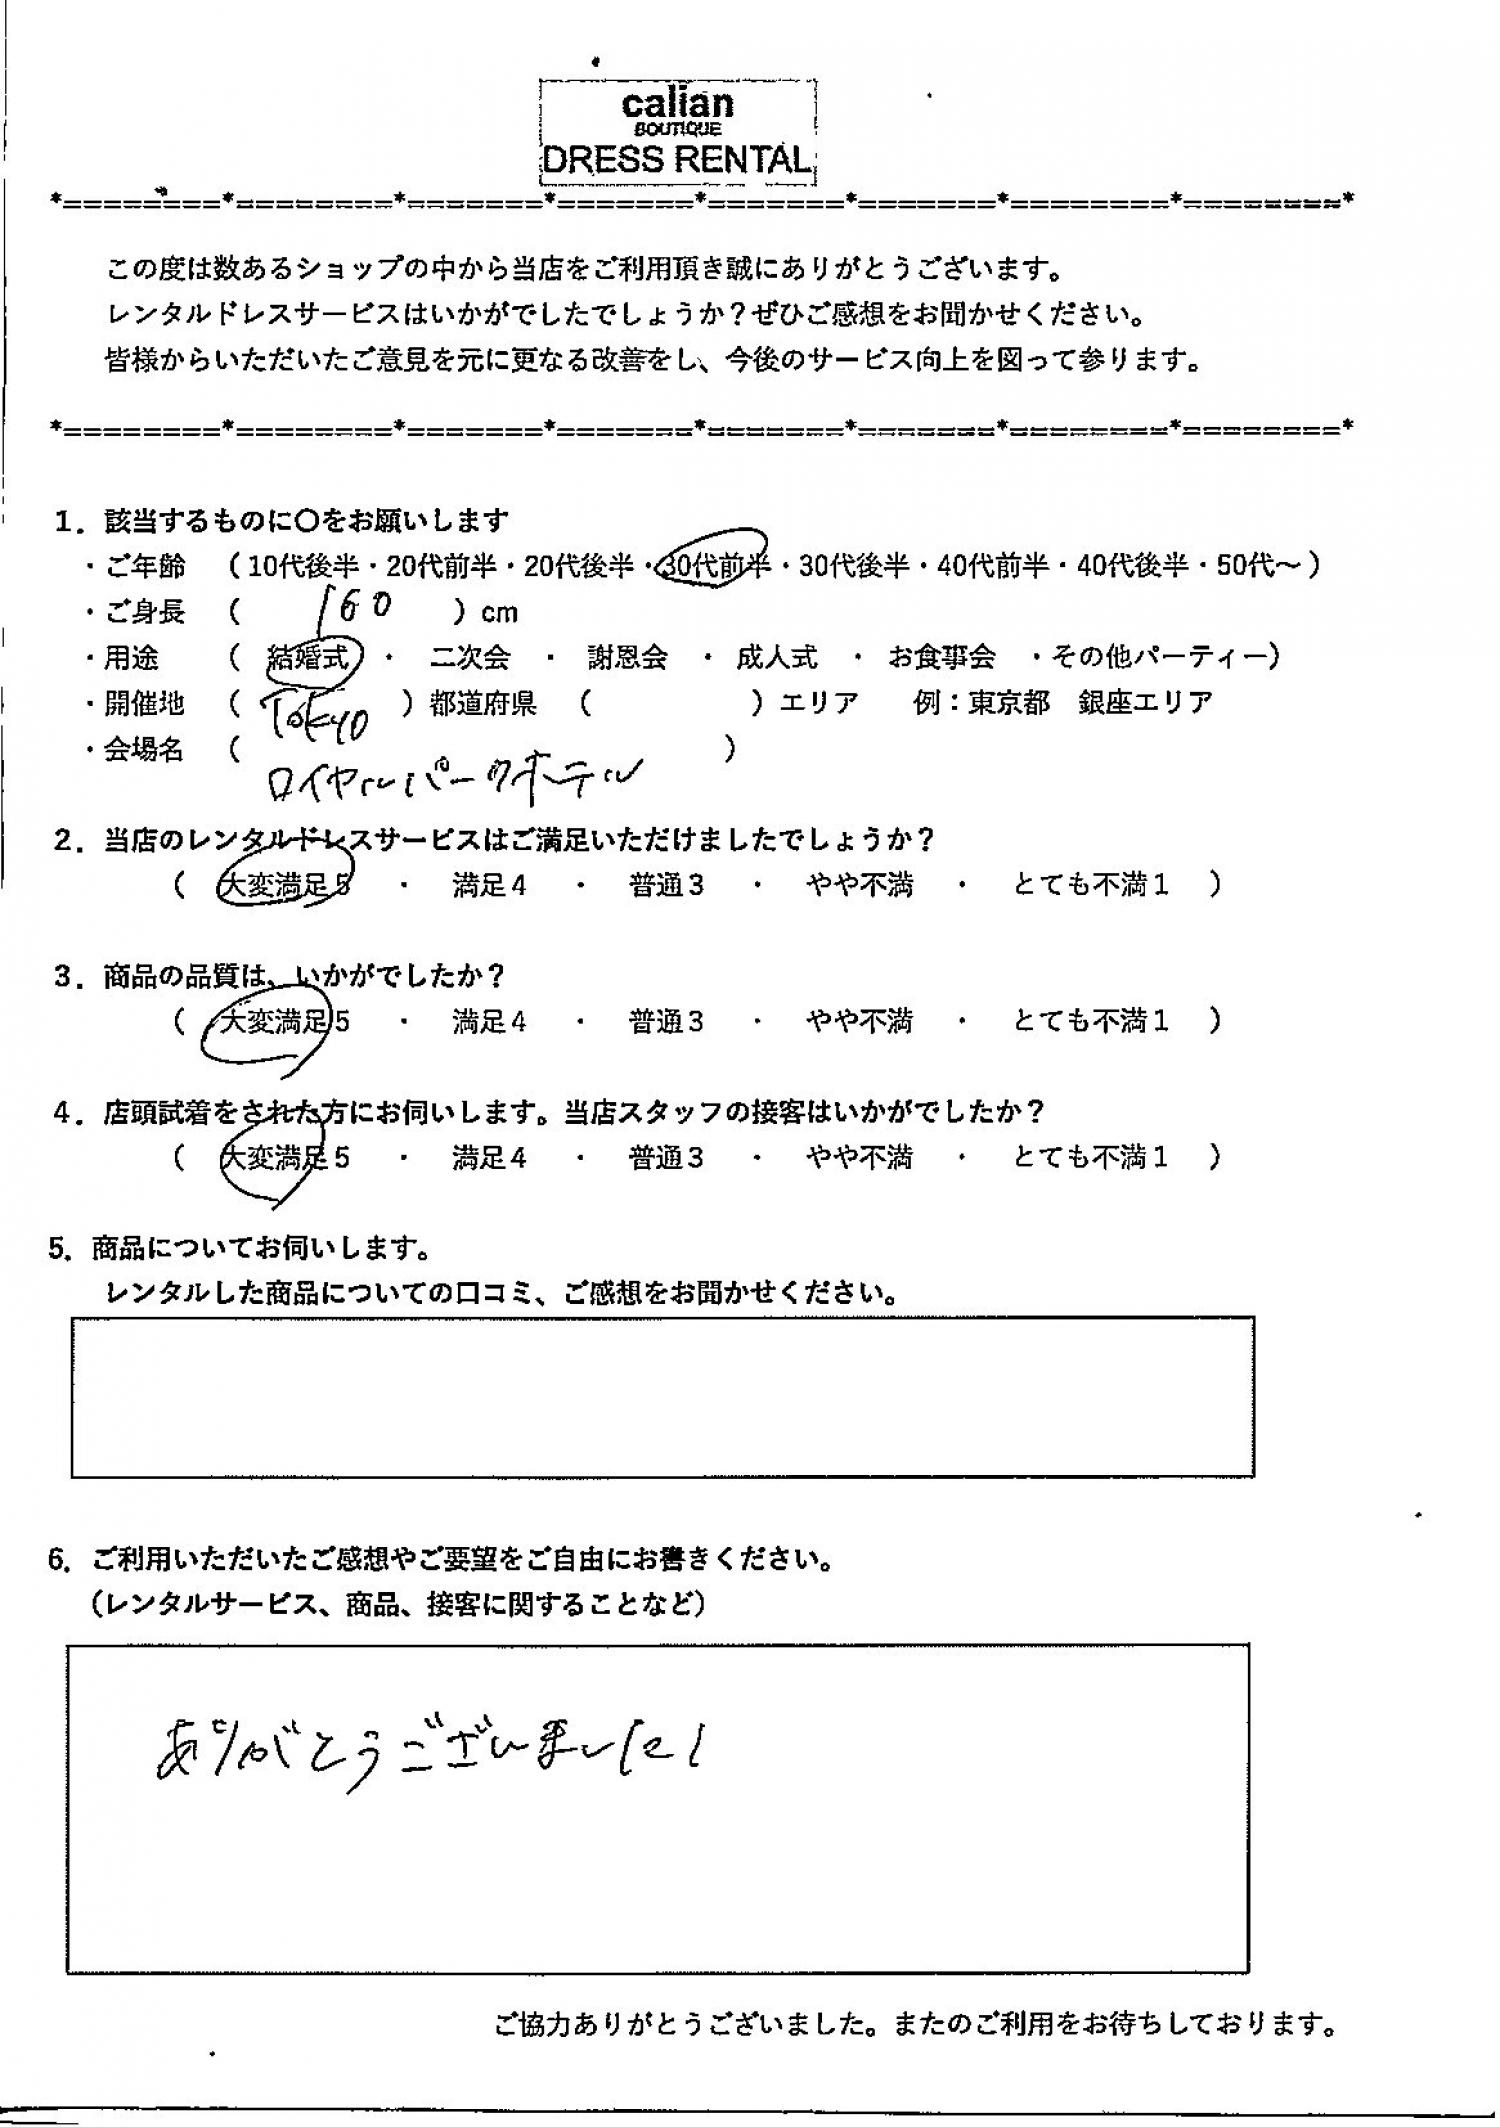 calian
BOUTIQUE
DRESS RENTAL
*========*========*=======*=======*=======*=======*========*========*
この度は数あるショップの中から当店をご利用頂き誠にありがとうございます。
レンタルドレスサービスはいかがでしたでしょうか？ぜひご感想をお聞かせください。
皆様からいただいたご意見を元に更なる改善をし、今後のサービス向上を図って参ります。
*========*========*=======*=======*=======*=======*========*========*
1．該当するものに〇をお願いします
・ご年齢 （10代後半・20代前半・20代後半・30代前半・30代後半・40代前半・40代後半・50代～）
・ご身長 （ 160 ）cm
・用途 （ 結婚式 ・ 二次会 ・ 謝恩会 ・ 成人式 ・ お食事会 ・その他パーティー）
・開催地 （ Tokyo ）都道府県 （ ）エリア 例：東京都 銀座エリア
・会場名 （ ロイヤルパークホテル ）
2．当店のレンタルドレスサービスはご満足いただけましたでしょうか？
（ 大変満足5 ・ 満足4 ・ 普通3 ・ やや不満 ・ とても不満1 ）
3．商品の品質は、いかがでしたか？
（ 大変満足5 ・ 満足4 ・ 普通3 ・ やや不満 ・ とても不満1 ）
4．店頭試着をされた方にお伺いします。当店スタッフの接客はいかがでしたか？
（ 大変満足5 ・ 満足4 ・ 普通3 ・ やや不満 ・ とても不満1 ）
5．商品についてお伺いします。
レンタルした商品についての口コミ、ご感想をお聞かせください。
6．ご利用いただいたご感想やご要望をご自由にお書きください。
（レンタルサービス、商品、接客に関することなど）
ありがとうございました！
ご協力ありがとうございました。またのご利用をお待ちしております。